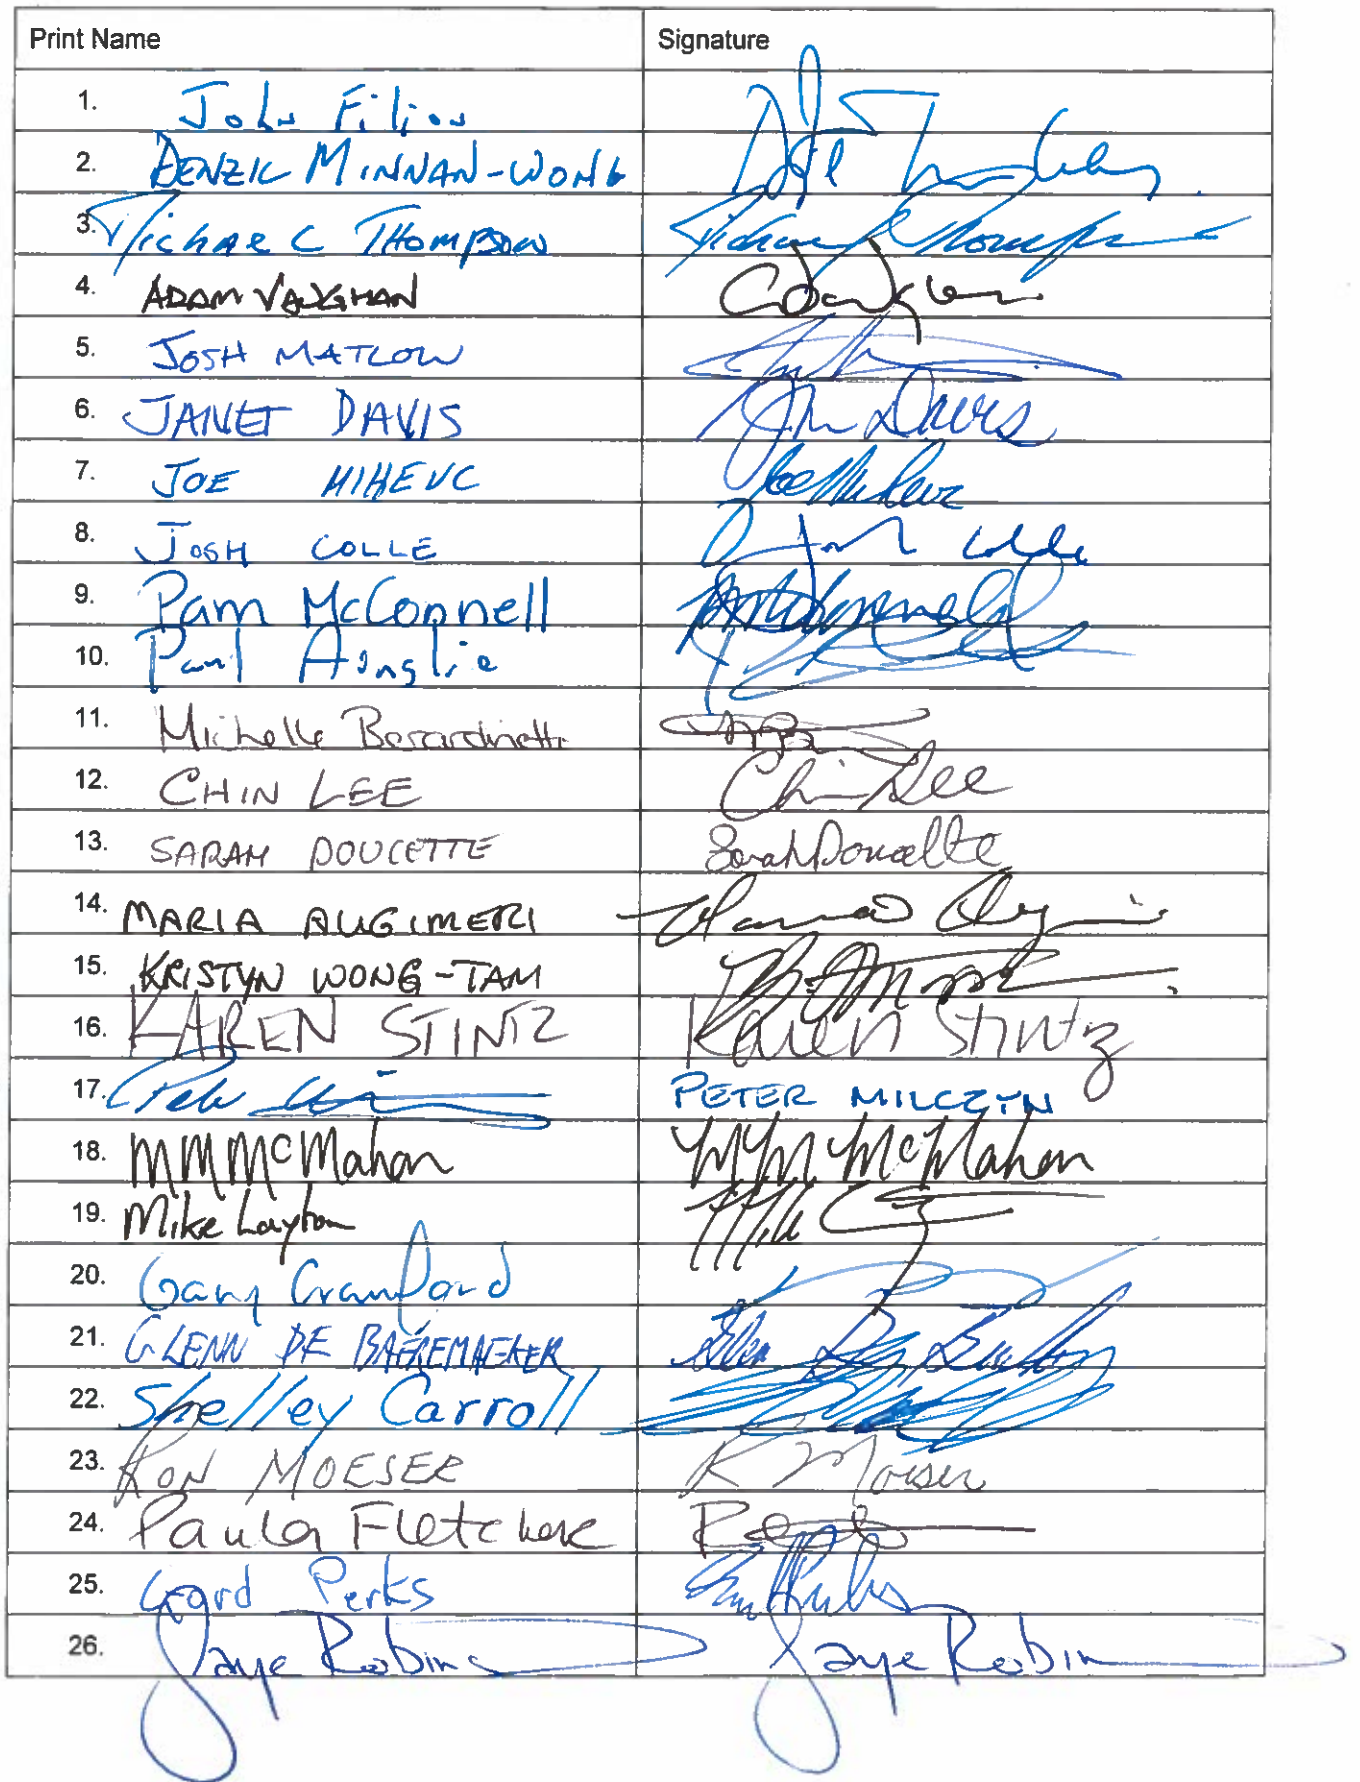 Print Name Signature
1. John Filion
2. DENZIL MINNAN-WONG
3. Michael Thompson Michael Thompson
4. ADAM VAUGHAN
5. JOSH MATLOW
6. JANET DAVIS J Davis
7. JOE MIHEVC Joe Mihevc
8. JOSH COLLE Josh Colle
9. Pam McConnell McConnell
10. Paul Ainslie
11. Michelle Berardinetti
12. CHIN LEE Chin Lee
13. SARAH DOUCETTE Sarah Doucette
14. MARIA AUGIMERI Maria Augimeri
15. KRISTYN WONG-TAM
16. KAREN STINTZ Karen Stintz
17. Peter PETER MILCZYN
18. MMMcMahon MM McMahon
19. Mike Layton Mike
20. Gary Crawford
21. GLENN DE BAEREMAEKER Glenn De
22. Shelley Carroll
23. RON MOESER R Moeser
24. Paula Fletcher
25. Gord Perks
26. Jaye Robinson Jaye Robin